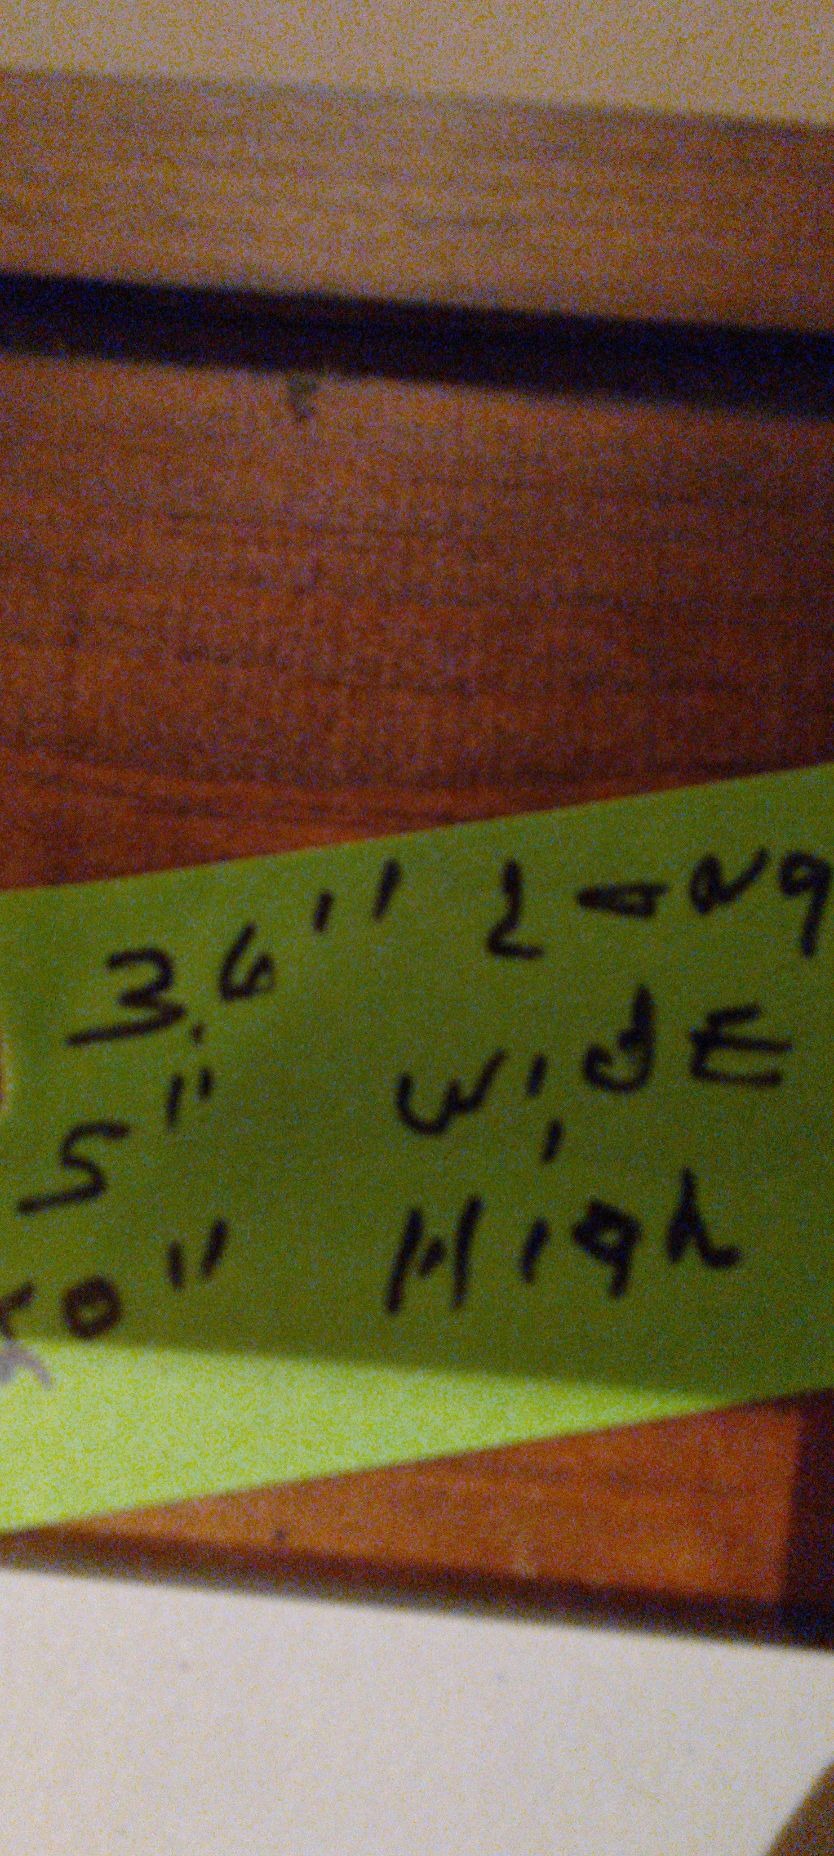 3.6" Long
5" WidE
50" High